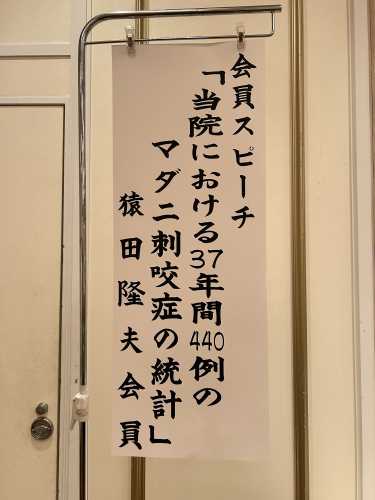 会員スピーチ
「当院における37年間440例の
マダニ刺咬症の統計」
猿田隆夫会員